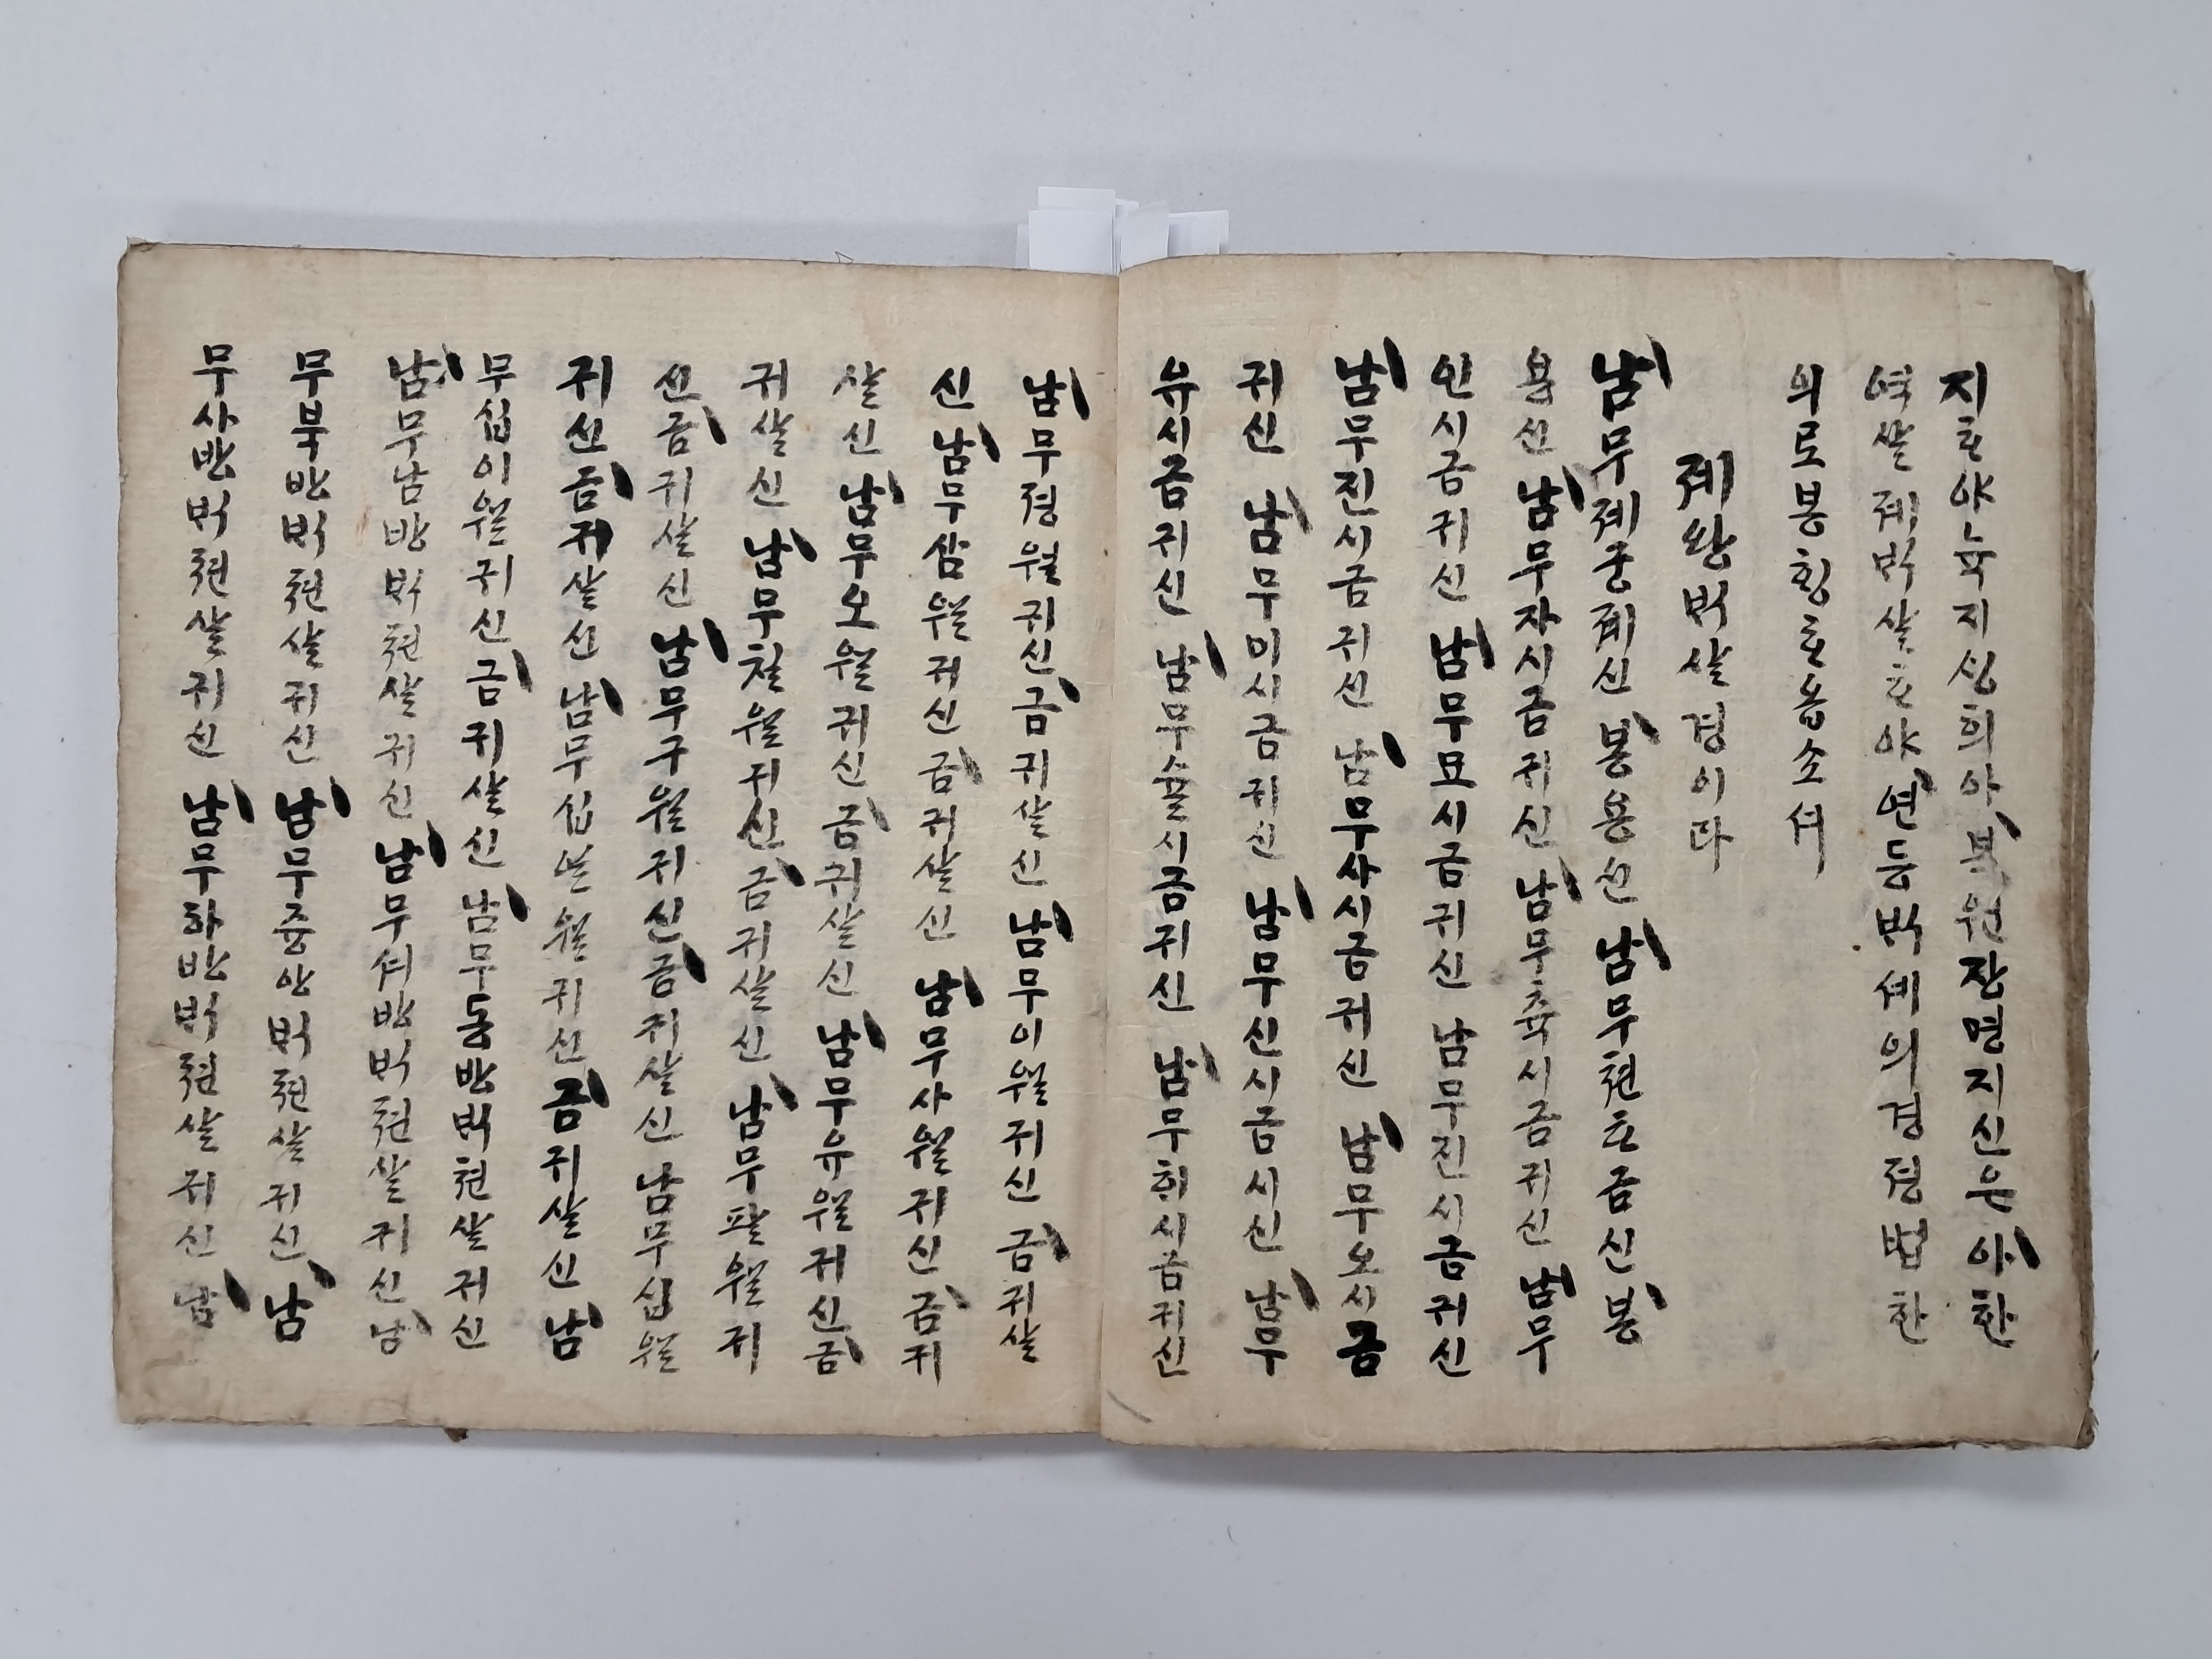 지ᄒᆞ야 늑지싱희아 복원잔명지신은 아한
여살졔벽살ᄒᆞ야 연등벅셰의경졍법한
의로봉힝ᄒᆞ옵소셔
졔왕벽살경이라
남무졔궁졔신 봉용신 남무쳔ᄒᆞ금신봉
용신 남무자시금귀신 남무츅시금귀신 남무
인시금귀신 남무묘시금귀신 남무진시금귀신
남무진시금귀신 남무사시금귀신 남무오시금
귀신 남무미시금귀신 남무신시금시신 남무
유시금귀신 남무슐시금귀신 남무히시금귀신
남무졍월귀신 금귀살신 남무이월귀신 금귀살
신 남무삼월귀신 금귀살신 남무사월귀신 금귀
살신 남무오월귀신 금귀살신 남무유월귀신 금
귀살신 남무칠월귀신 금귀살신 남무팔월귀
신 금귀살신 남무구월귀신 금귀살신 남무십월
귀신 금귀살신 남무십일월귀신 금귀살신 남
무십이월귀신 금귀살신 남무동방벽쳔살귀신
남무남방벽쳔살귀신 남무셔방벽쳔살귀신 남
무북방벽쳔살귀신 남무즁앙벽쳔살귀신 남
무사방벽쳔살귀신 남무하방벽쳔살귀신 남